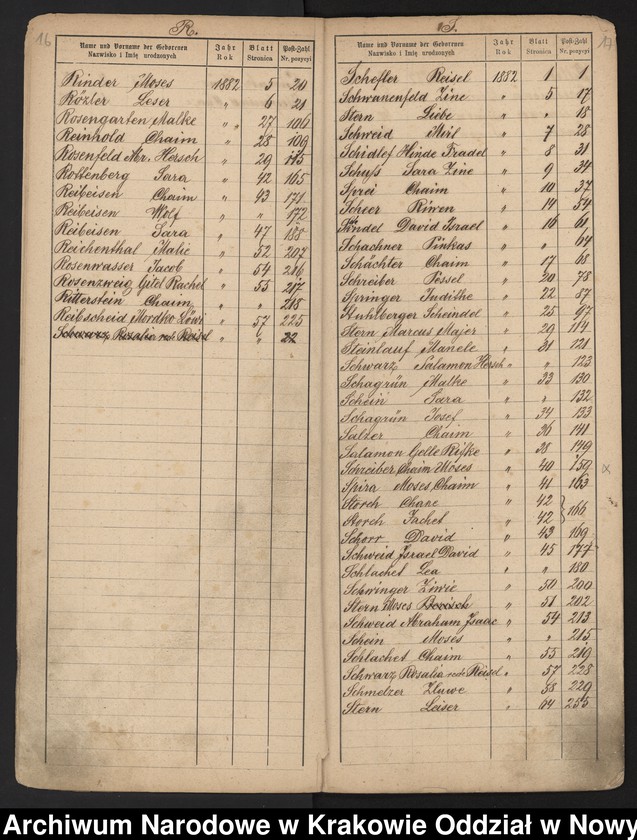 16
R.
Name und Vorname der Geborenen Jahr Blatt Post-Zahl
Nazwisko i Imię urodzonych Rok Stronica Nr. pozycyi
Rinder Moses 1882 5 20
Rözler Leser " 6 21
Rosengarten Malke " 27 106
Reinhold Chaim " 28 109
Rosenfeld Abr. Hersch " 29 115
Rottenberg Sara " 42 165
Reibeisen Chaim " 43 171
Reibeisen Wolf " " 172
Reibeisen Sara " 47 188
Reichenthal Malie " 52 207
Rosenwasser Jacob " 54 216
Rosenzweig Gitel Rachel " 55 217
Ritterstein Chaim " " 218
Reibscheid Mordko Löwi " 57 225
Schwarz Rosalia recte Reisel " " 22
17
S.
Name und Vorname der Geborenen Jahr Blatt Post-Zahl
Nazwisko i Imię urodzonych Rok Stronica Nr. pozycyi
Schefler Reisel 1882 1 1
Schwanenfeld Zine " 5 17
Stern Liebe " " 18
Schweid Mirl " 7 28
Schidlof Hinde Fradel " 8 31
Schuss Sara Zine " 9 34
Sprei Chaim " 10 37
Scheer Riwen " 14 54
David Israel " 16 61
Schachner Pinkas " " 64
Schächter Chaim " 17 68
Schreiber Pessel " 20 78
Springer Judithe " 22 87
Stuhlberger Scheindel " 25 97
Stern Marcus Majer " 29 114
Steinlauf Manele " 31 121
Schwarz Salamon Hersch " " 123
Schagrün Malke " 33 130
Schein Sara " " 132
Schagrün Josef " 34 133
Salzer Chaim " 36 141
Salamon Gelle Rifke " 38 149
Schreiber Chaim Moses " 40 159 x
Spira Moses Chaim " 41 163
Storch Chane " 42 } 166
Storch Jachet " 42
Schorr David " 43 169
Schweid Israel David " 45 177
Schlachet Lea " " 180
Schwinger Ziwie " 50 200
Stern Moses " 51 202
Schweid Abraham Isaac " 54 213
Schein Moses " " 215
Schlachet Chaim " 55 219
Schwarz Rosalia recte Reisel " 57 228
Schmelzer Zluwe " 58 229
Stern Leiser " 64 255
Archiwum Narodowe w Krakowie Oddział w Nowy